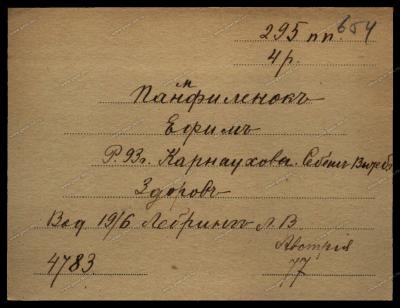 295 пп. 654
4 р.
Панфиленокъ
Ефимъ
Р. 93 г. Карнаухова. Себеш Витеб
Здоровъ
Вод 19/6 Лебрингъ Л В
Австрія
4783 77